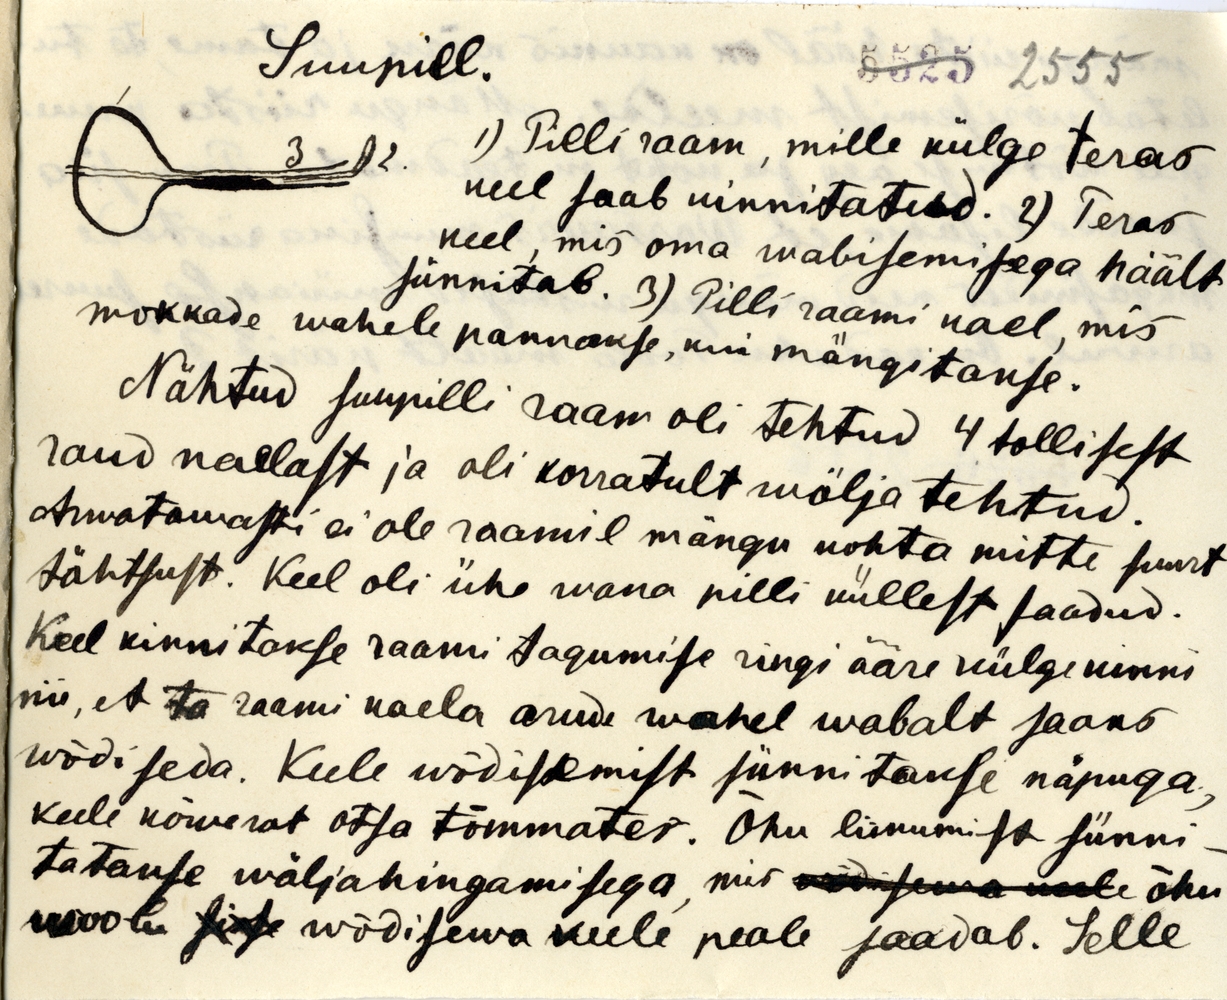 Suupill.
5525 2555
1 3 2.
1) Pilli raam, mille külge teras
keel saab kinnitatud. 2) Teras
keel, mis oma wabisemisega häält
sünnitab. 3) Pilli raami kael, mis
mokkade wahele pannakse, kui mängitakse.
Nähtud suupilli raam oli tehtud 4 tollisest
raud naelast ja oli korratult wälja tehtud.
Arwatawasti ei ole raamil mängu kohta mitte suurt
tähtsust. Keel oli ühe wana pilli küllest saadud.
Keel kinnitakse raami tagumise ringi ääre külge kinni
nii, et ta raami kaela arude wahel wabalt saaks
wõdiseda. Keele wõdisemist sünnitakse näpuga,
keele kõwerat otsa tõmmates. Õhu liikumist sünni-
tatakse wäljahingamisega, mis wõdisewa keele õhu
woolu sisse wõdisewa keele peale saadab. Selle